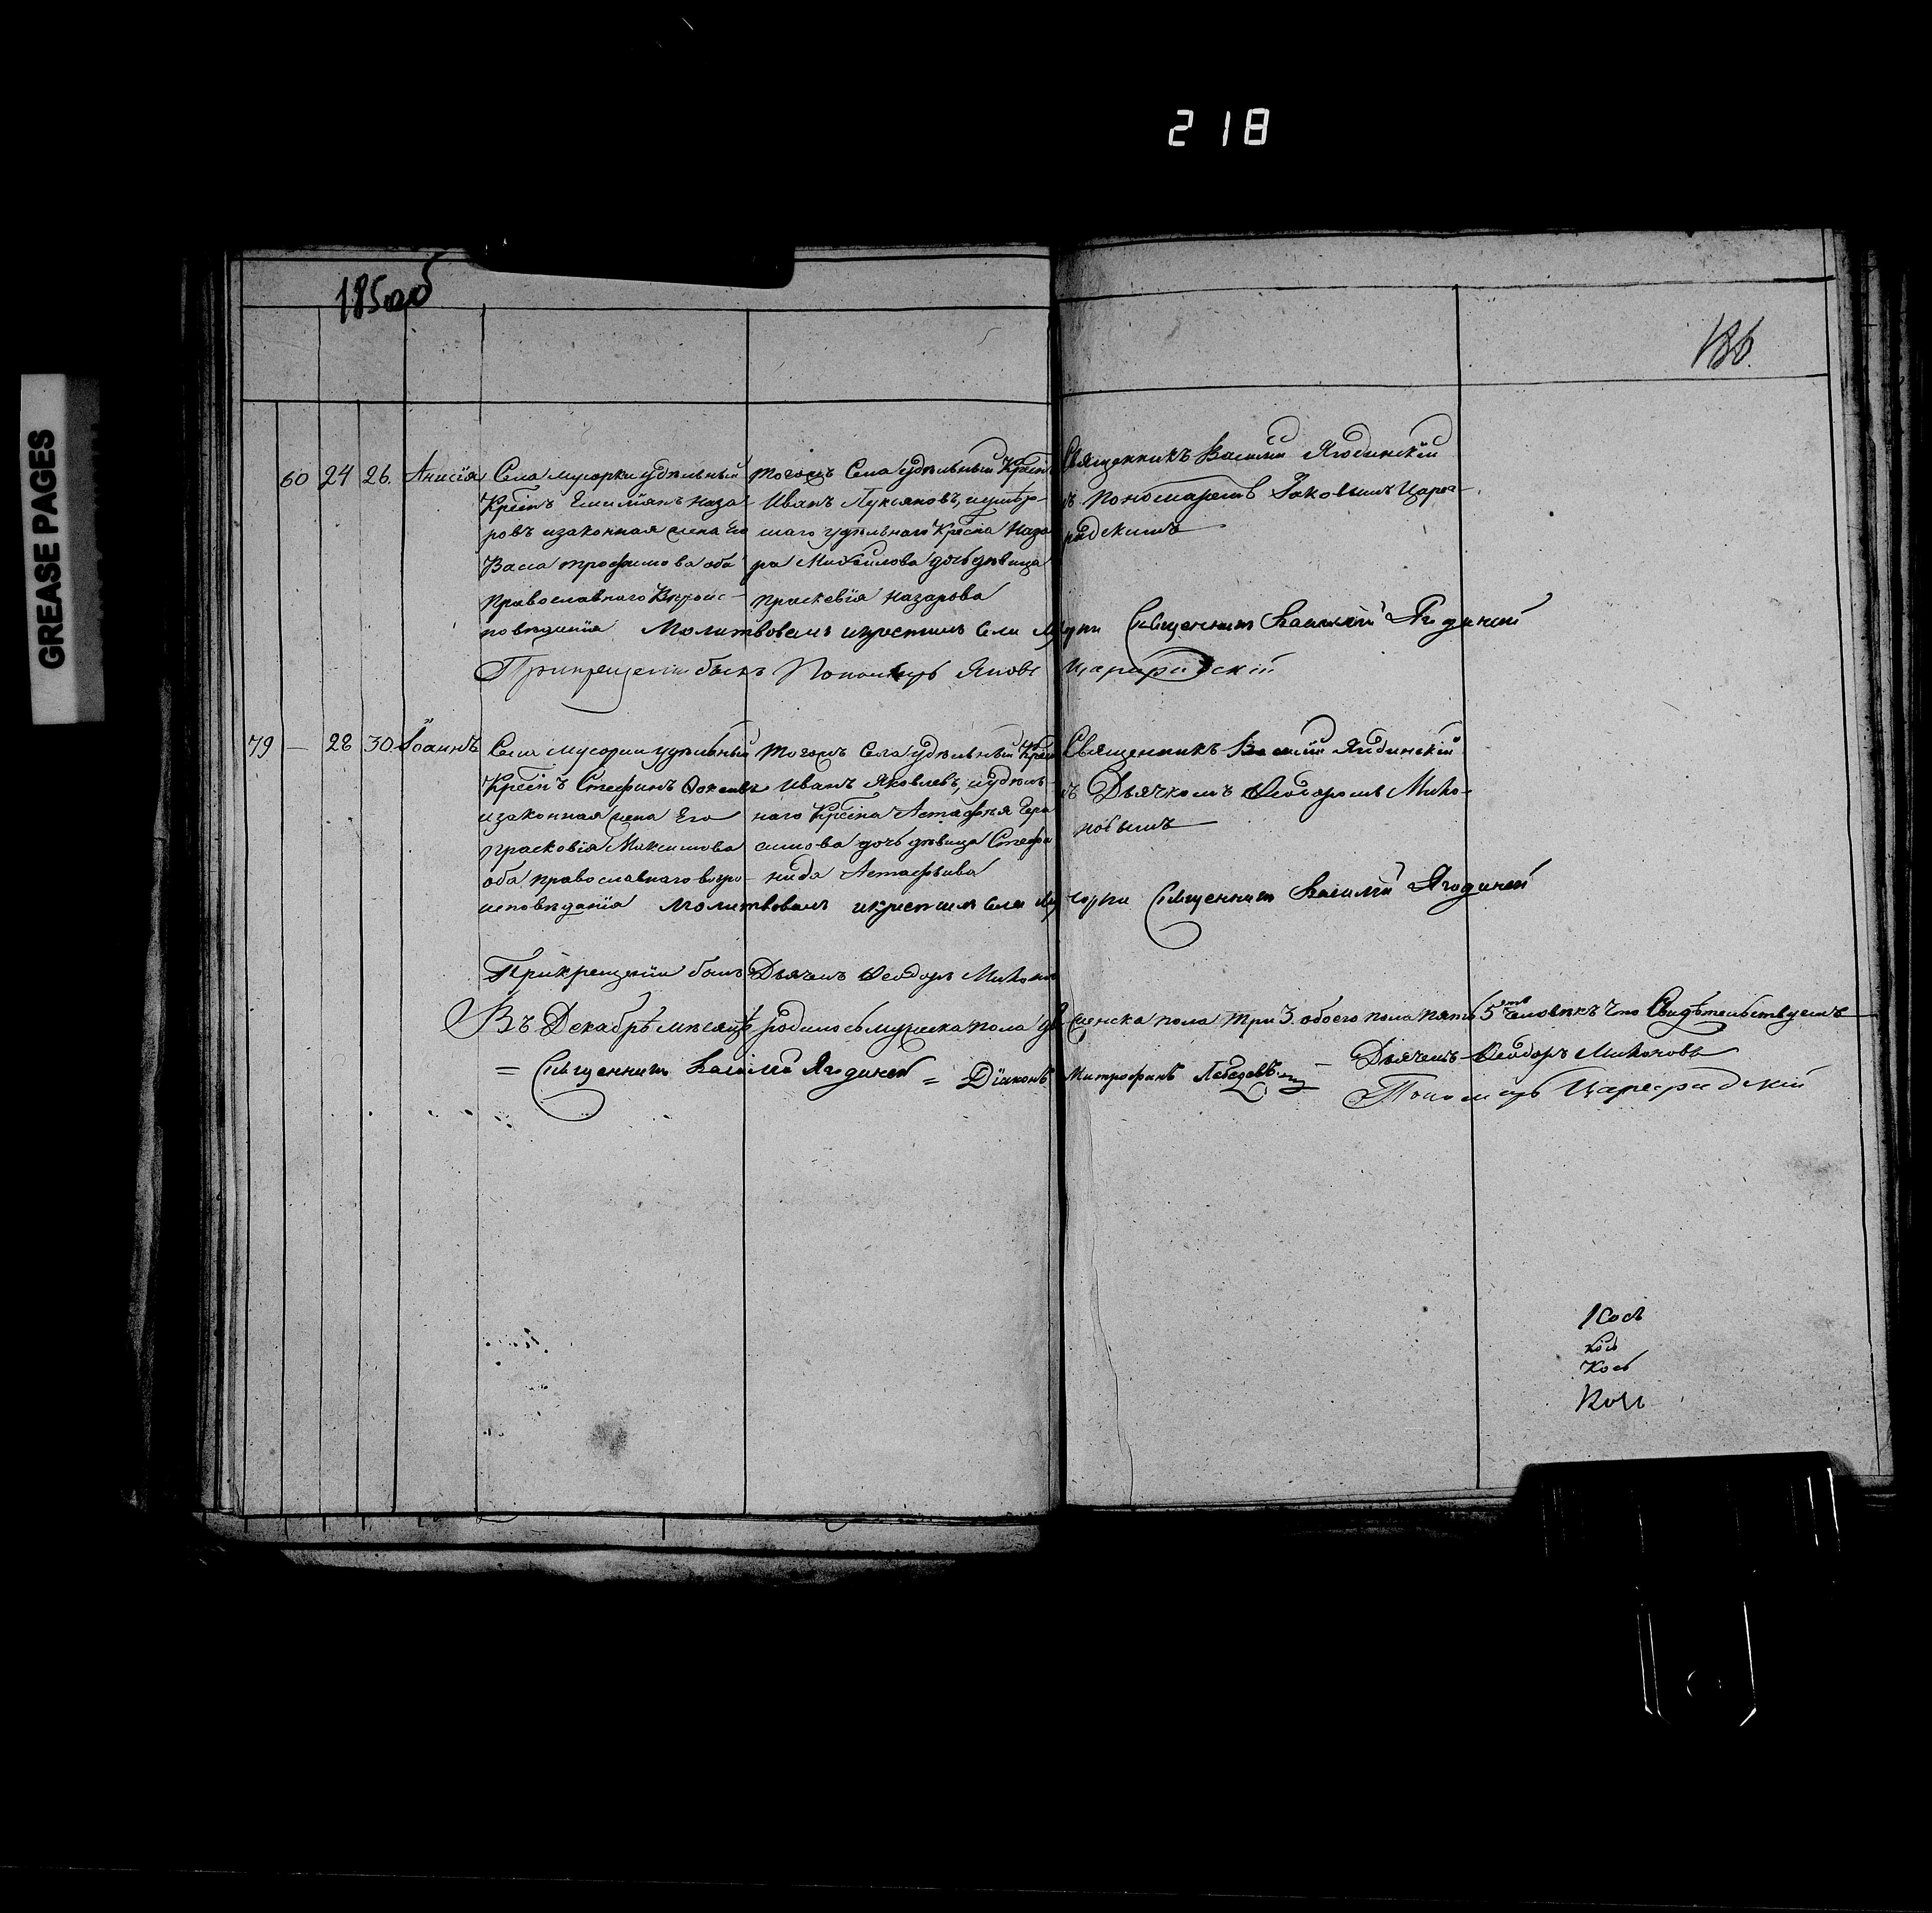 218
GREASE PAGES
185 об
186.
60 24 26. Анисія
Села мусорки удѣльный
Крест҃ъ Емельянъ Наза-
ровъ изаконная жена его
Васса трофимова оба
православнаго вѣроис-
повѣданія
тогожъ Села удѣльный Крест҃
Иванъ Лукьяновъ, иумер-
шаго удѣльнаго Крест҃на Наза
ра Михайлова дочь дѣвица
праскевія назарова
Священникъ Василій Ягодинскій
съ пономаремъ Іаковымъ Царег-
радскимъ
Молитвовалъ икрестилъ села Мусорки Священникъ Василій Ягодинскій
Прикрещеніи былъ Пономарь Яковъ Цареградскій
79 — 28 30. Іоаннъ
Села мусорки удѣльный
Крест҃ъ Стефанъ
изаконная жена Его
прасковія Максимова
оба православнаго вѣро-
исповѣданія
тогожъ Села удѣльный Крест҃
Иванъ Яковлевъ, иудѣль-
наго Крест҃на Астафья Гера
симова дочь дѣвица Стефа
нида Астафьева
Священникъ Василій Ягодинскій
съ Дьячкомъ Ѳеодоромъ Михо-
новымъ
Молитвовалъ икрестилъ села Мусорки Священникъ Василій Ягодинскій
Прикрещеніи былъ Дьячекъ Ѳеодоръ
Въ Декабрѣ мѣсяцѣ родилось мужеска пола женска пола три 3. обоего пола пять 5 человѣкъ что Свидѣтельствуемъ
= Священникъ Василій Ягодинскій = Діаконъ Митрофанъ Лебедевъ — Дьячекъ Ѳеодоръ Михоновъ
Пономарь Цареградскій